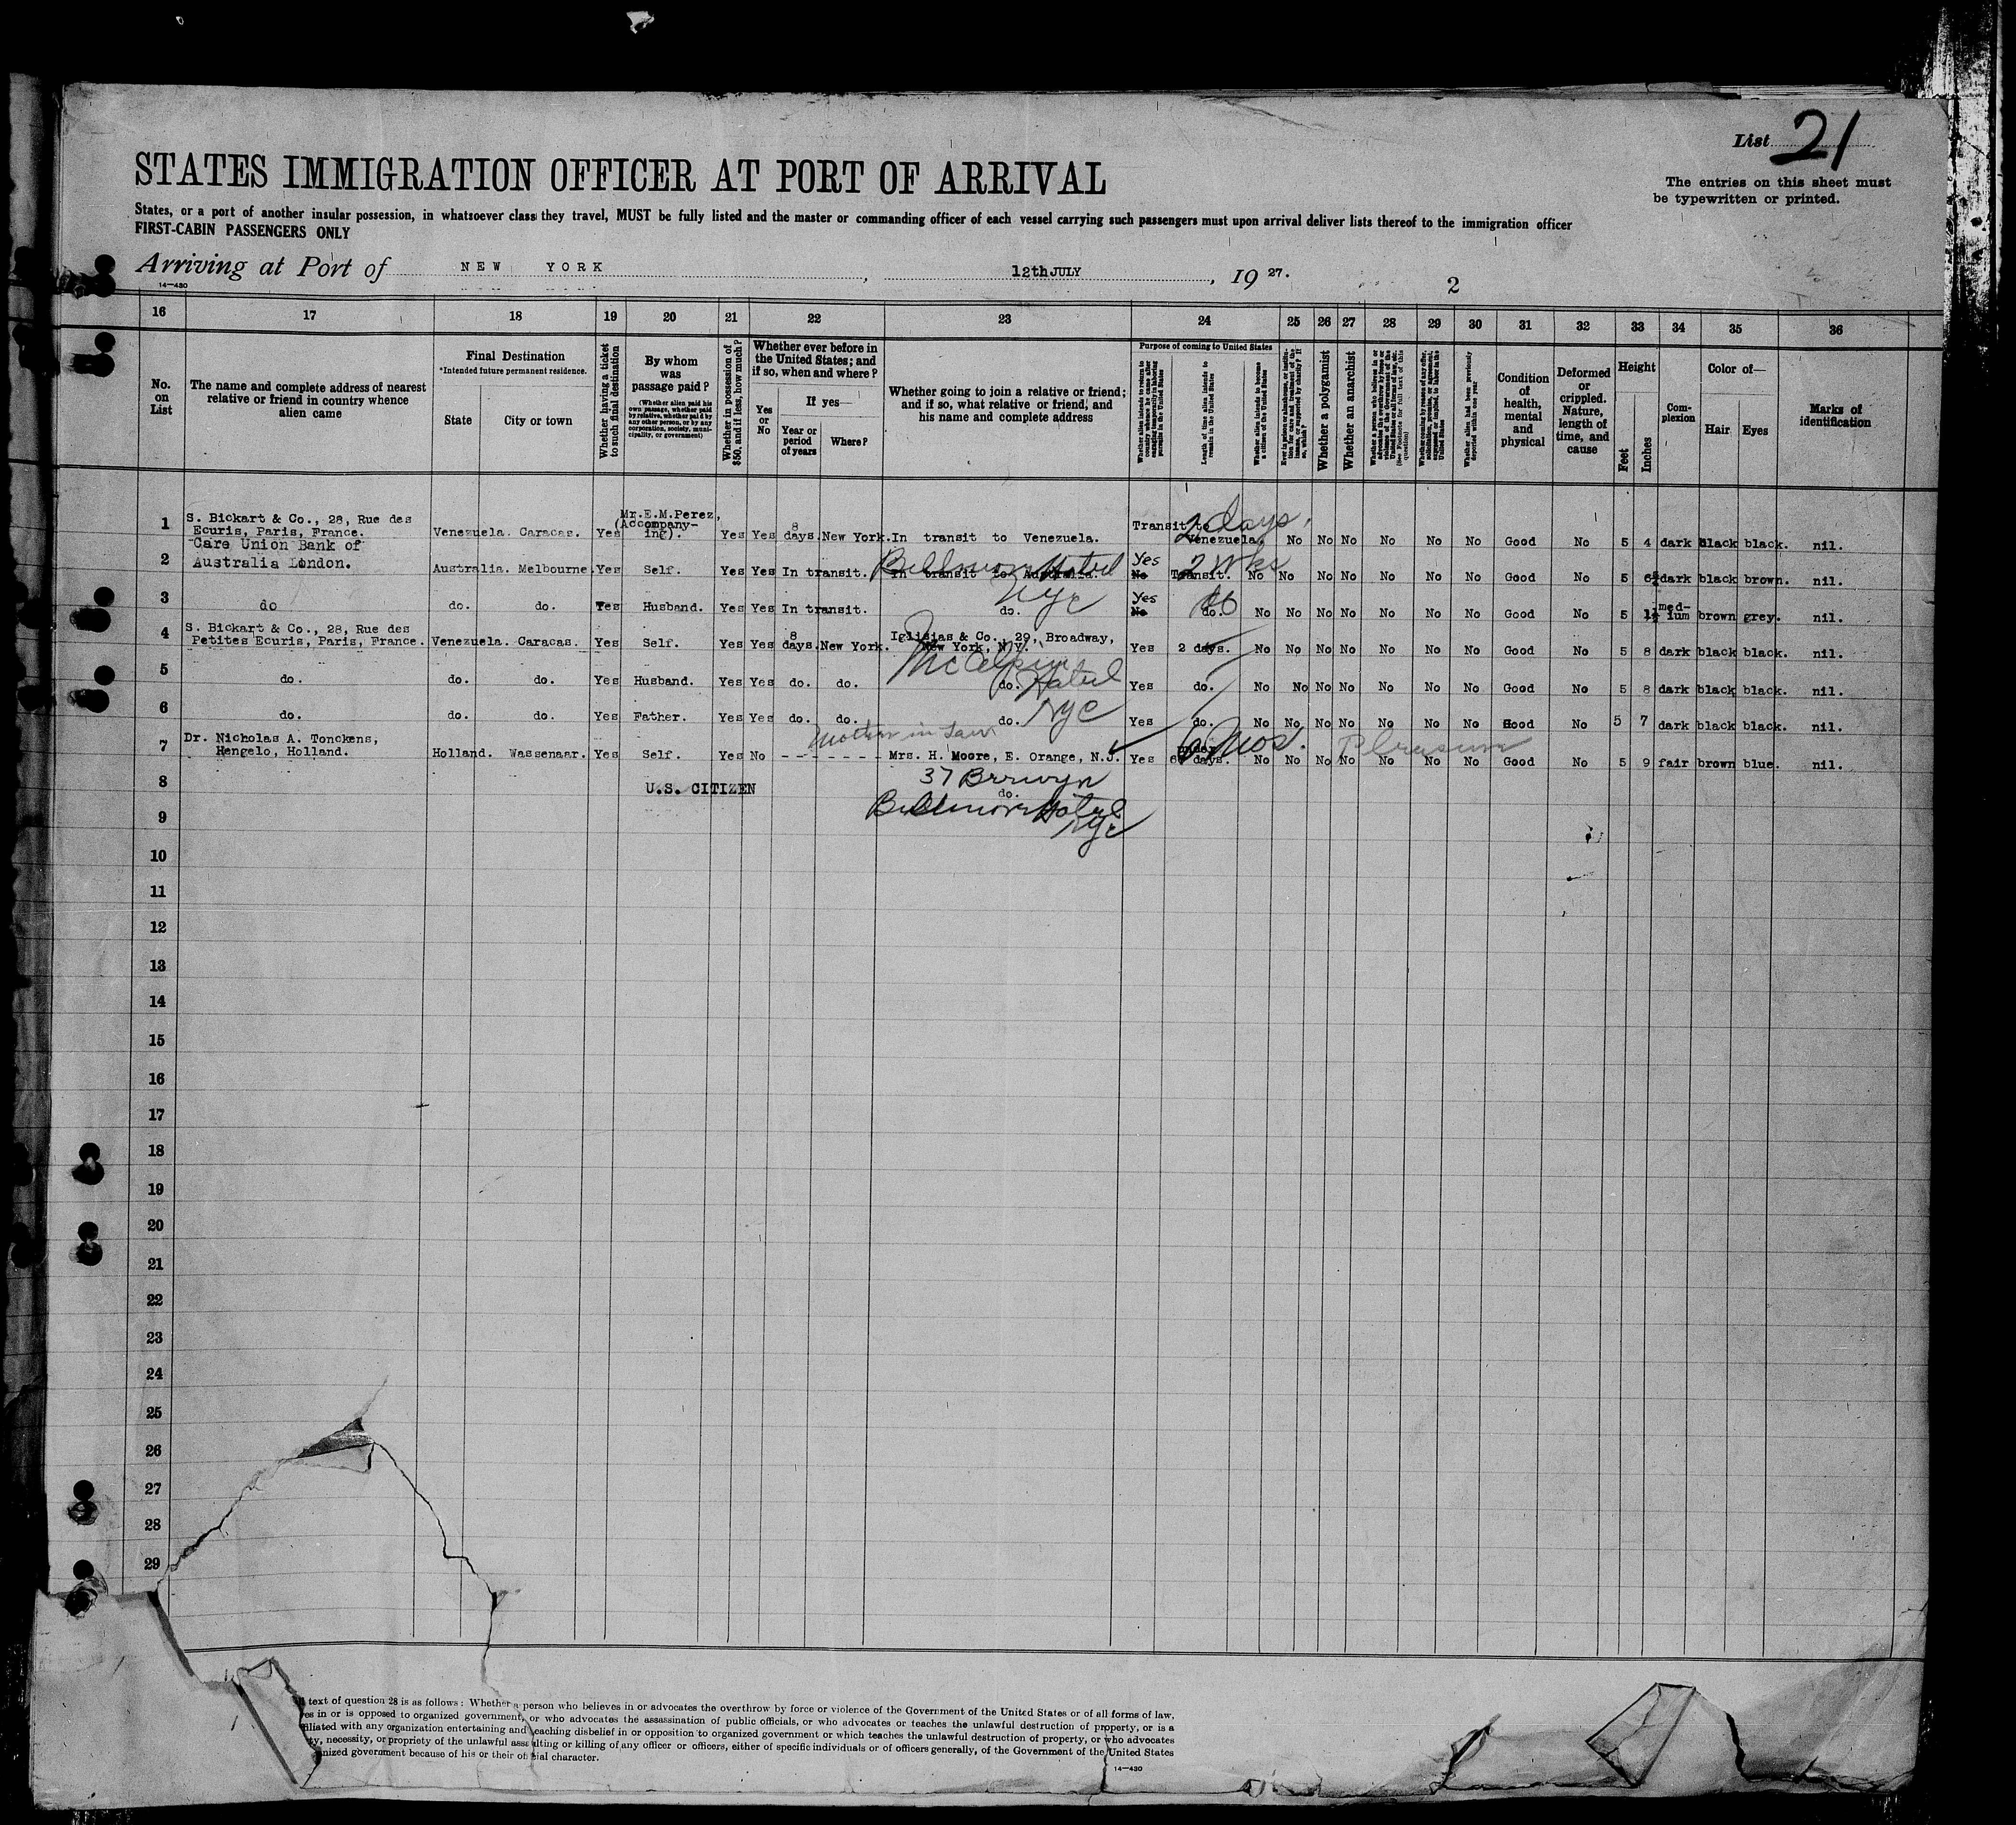 List 21
The entries on this sheet must
be typewritten or printed.
STATES IMMIGRATION OFFICER AT PORT OF ARRIVAL
States, or a port of another insular possession, in whatsoever class they travel, MUST be fully listed and the master or commanding officer of each vessel carrying such passengers must upon arrival deliver lists thereof to the immigration officer
FIRST-CABIN PASSENGERS ONLY
Arriving at Port of NEW YORK, 12th JULY, 19 27.
14—430
2
16 17 18 19 20 21 22 23 24 25 26 27 28 29 30 31 32 33 34 35 36
No. on List
The name and complete address of nearest relative or friend in country whence alien came
Final Destination
*Intended future permanent residence.
State
City or town
Whether having a ticket to such final destination
By whom was passage paid?
(Whether alien paid his own passage, whether paid by relative, whether paid by any other person, or by any corporation, society, municipality, or government)
Whether in possession of $50, and if less, how much?
Whether ever before in the United States; and if so, when and where?
Yes or No
If yes—
Year or period of years
Where?
Whether going to join a relative or friend; and if so, what relative or friend, and his name and complete address
Purpose of coming to United States
Whether alien intends to return to country whence he came after engaging temporarily in laboring pursuits in the United States
Length of time alien intends to remain in the United States
Whether alien intends to become a citizen of the United States
Ever in prison or almshouse, or institution for care and treatment of the insane, or supported by charity? If so, which?
Whether a polygamist
Whether an anarchist
Whether a person who believes in or advocates the overthrow by force or violence of the Government of the United States or all forms of law, etc. (See footnote for full text of this question)
Whether coming by reason of any offer, solicitation, promise, or agreement, expressed or implied, to labor in the United States
Whether alien had been previously deported within one year
Condition of health, mental and physical
Deformed or crippled. Nature, length of time, and cause
Height
Feet
Inches
Complexion
Color of—
Hair
Eyes
Marks of identification
1 S. Bickart & Co., 28, Rue des Ecuris, Paris, France. Venezuela. Caracas. Yes Mr.E.M.Perez, (Accompanying). Yes Yes 8 days. New York. In transit to Venezuela. Transit to Venezuela. 2 days. No No No No No No Good No 5 4 dark black black. nil.
2 Care Union Bank of Australia London. Australia. Melbourne. Yes Self. Yes Yes In transit. In transit to Australia. Biltmore Hotel NYC Yes No Transit. 2 Wks No No No No No No No Good No 5 6½ dark black brown. nil.
3 do do. do. Yes Husband. Yes Yes In transit. do. Yes No do. do No No No No No No No Good No 5 1½ medium brown grey. nil.
4 S. Bickart & Co., 28, Rue des Petites Ecuris, Paris, France. Venezuela. Caracas. Yes Self. Yes Yes 8 days. New York. Iglisias & Co., 29, Broadway, New York, N.Y. Yes 2 days. No No No No No No No Good No 5 8 dark black black. nil.
McAlpin Hotel NYC
5 do. do. do. Yes Husband. Yes Yes do. do. do. Yes do. No No No No No No No Good No 5 8 dark black black. nil.
6 do. do. do. Yes Father. Yes Yes do. do. do. Yes do. No No No No No No No Good No 5 7 dark black black. nil.
Mother in Law
7 Dr. Nicholas A. Tonckens, Hengelo, Holland. Holland. Wassenaar. Yes Self. Yes No - - - - - - - Mrs. H. Moore, E. Orange, N.J. Yes under 60 days. 6 Mos. No No No No No No No Pleasure Good No 5 9 fair brown blue. nil.
37 Berwyn
8 U.S. CITIZEN do.
Biltmore Hotel
NYC
9
10
11
12
13
14
15
16
17
18
19
20
21
22
23
24
25
26
27
28
29
text of question 28 is as follows: Whether a person who believes in or advocates the overthrow by force or violence of the Government of the United States or of all forms of law,
es in or is opposed to organized government, or who advocates the assassination of public officials, or who advocates or teaches the unlawful destruction of property, or is a
filiated with any organization entertaining and teaching disbelief in or opposition to organized government or which teaches the unlawful destruction of property, or who advocates
ty, necessity, or propriety of the unlawful assaulting or killing of any officer or officers, either of specific individuals or of officers generally, of the Government of the United States
nized government because of his or their official character.
14—430